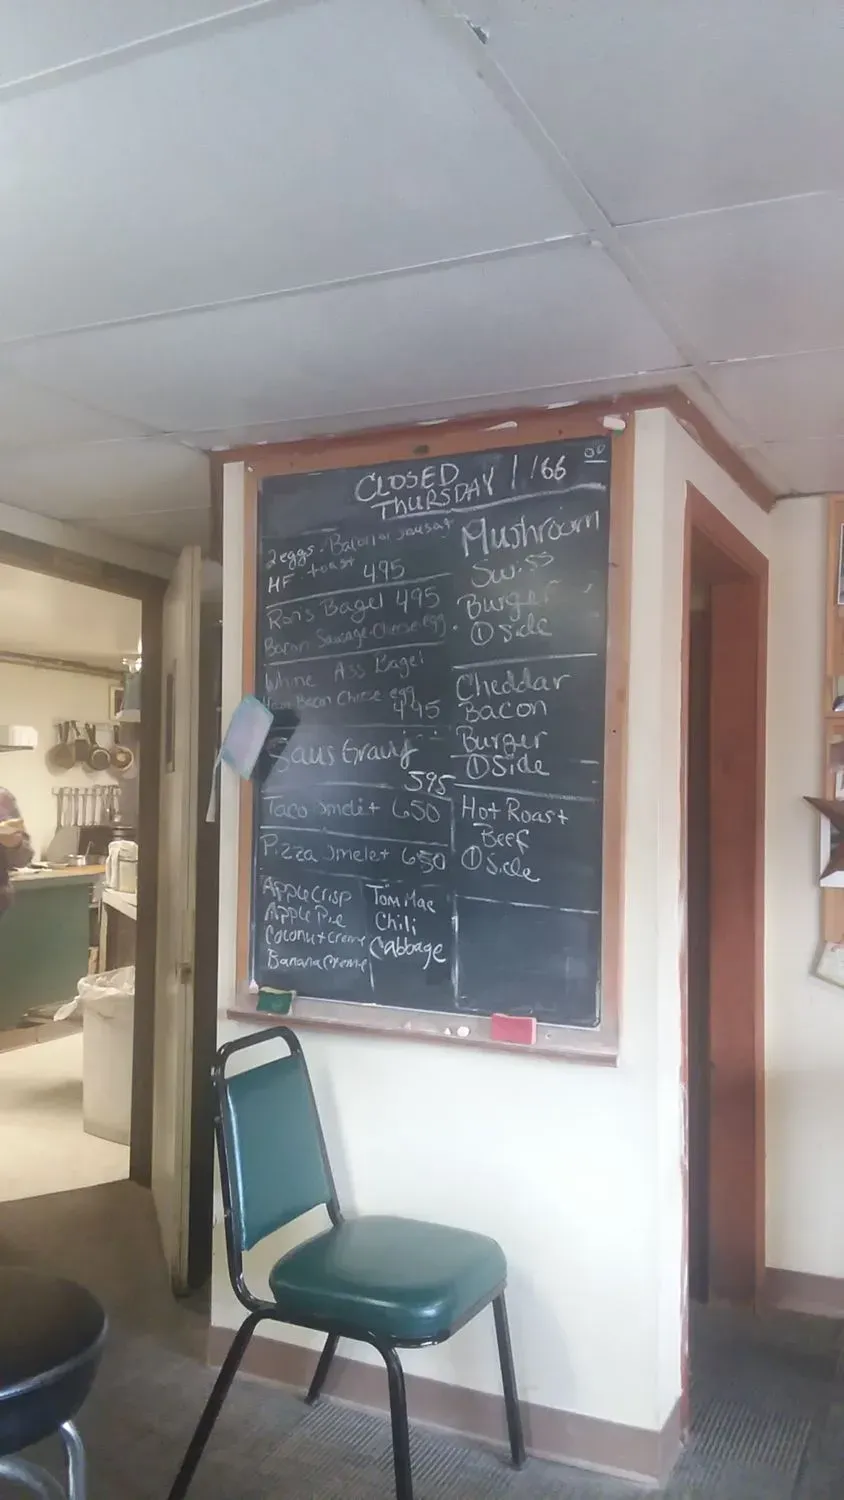 CLOSED
THURSDAY
166 00
2 eggs - Bacon or sausat
HF toast 495
Ron's Bagel 495
Bacon Sausage Cheese egg
Whine Ass Bagel
Ham Bacon Cheese egg
495
Saus Gravy
595
Taco omelet 650
Pizza omelet 650
Apple Crisp
Apple Pie
Coconut creme
Banana Creme
Tom Mac
Chili
Cabbage
Mushroom
Swiss
Burger
① Side
Cheddar
Bacon
Burger
① Side
Hot Roast
Beef
① Side